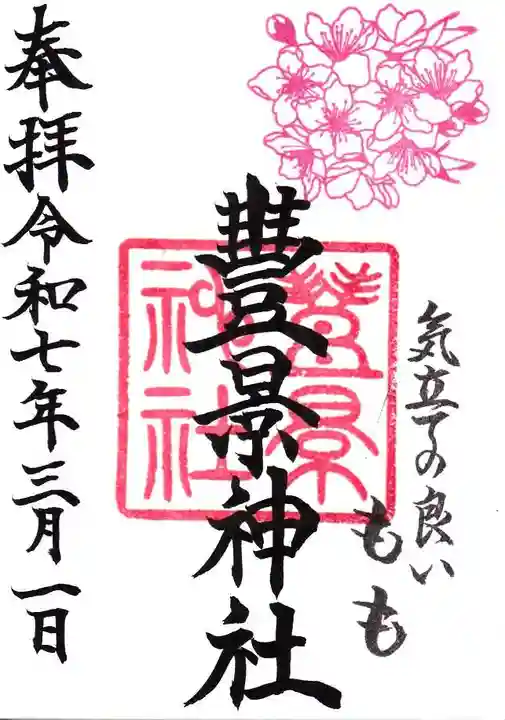 気立ての良い
もも
豊景神社
豊景神社
奉拝令和七年三月一日